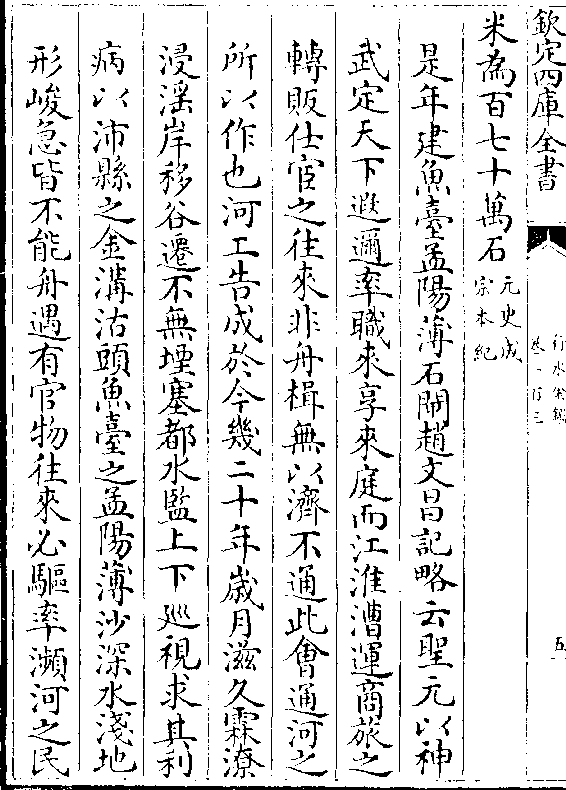 欽定四庫全書
行水金鑑
卷一百三
五
米為百七十萬石
元史成
宗本紀
是年建魚臺孟陽薄石閘趙文昌記略云聖元以神
武定天下遐邇率職來享來庭而江淮漕運商旅之
轉販仕宦之往來非舟楫無以濟不通此㑹通河之
所以作也河工告成於今幾二十年歲月滋久霖潦
浸淫岸移谷遷不無堙塞都水監上下廵視求其利
病以沛縣之金溝沽頭魚臺之孟陽薄沙深水淺地
形峻急皆不能舟遇有官物往來必驅率瀕河之民